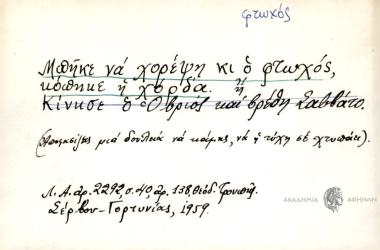 φτωχός
Μπῆκε νά χορέψη κι ὁ φτωχός,
κόπηκε ἡ χόρδα. ἤ
Κίνησε ὁ Ὁβριός καί βρέθη Σαββάτο.
(Ἀποφασίζεις μιά δουλειά νά κάμης, νά ἡ τύχη σέ χτυπάει).
Λ.Α. ἀρ. 2292 σ. 40, ἀρ. 138, Θεόδ.
Σέρβου-Γορτυνίας, 1959.
ΑΚΑΔΗΜΙΑ ΑΘΗΝΩΝ